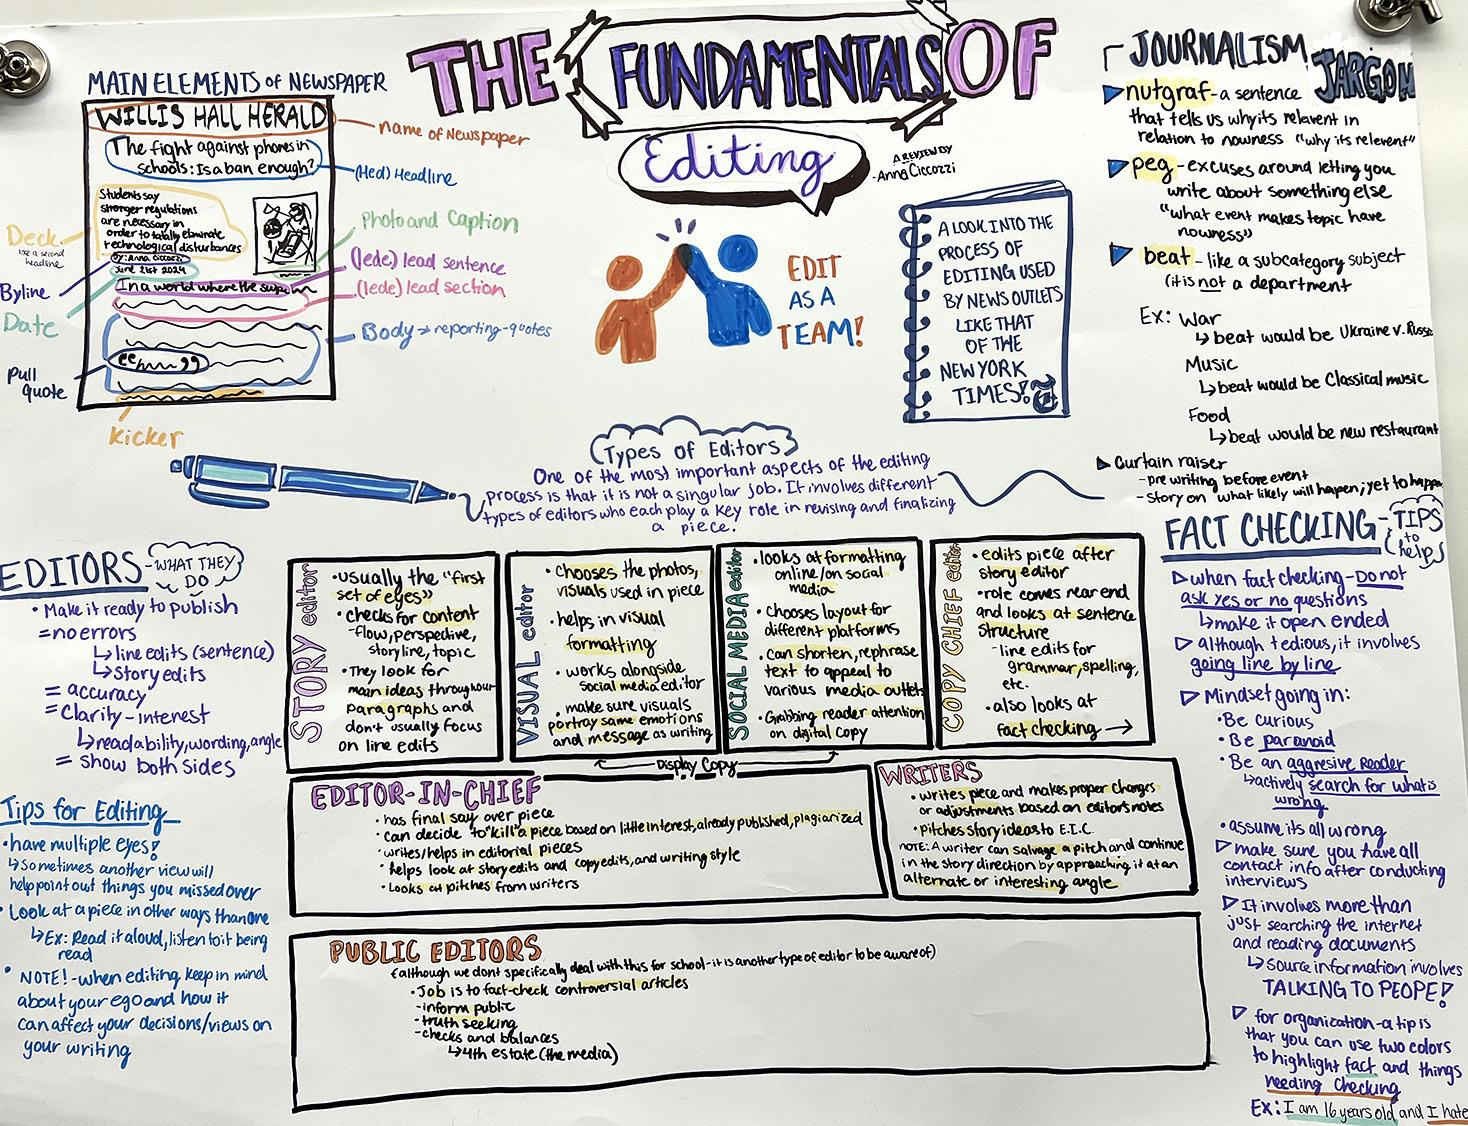 THE FUNDAMENTALS OF
Editing
A REVIEW BY
-Anna Ciccozzi
MAIN ELEMENTS of NEWSPAPER
WILLIS HALL HERALD
The fight against phones in
schools: Is a ban enough?
Students say
stronger regulations
are necessary in
order to totally eliminate
technological disturbances
by: Anna Ciccozzi
June 21st 2024
In a world where the
name of Newspaper
(Hed) Headline
Photo and Caption
(lede) lead sentence
(lede) lead section
Body → reporting-quotes
Deck
like a second
headline
Byline
Date
Pull
quote
Kicker
EDIT
AS A
TEAM!
A LOOK INTO THE
PROCESS OF
EDITING USED
BY NEWS OUTLETS
LIKE THAT
OF THE
NEW YORK
TIMES!
JOURNALISM
JARGON
nutgraf - a sentence
that tells us why its relevent in
relation to nowness "why its relevent"
peg - excuses around letting you
write about something else
"what event makes topic have
nowness"
beat - like a subcategory subject
(it is not a department
Ex: War
↳ beat would be Ukraine v. Russ
Music
↳ beat would be Classical music
Food
↳ beat would be new restaurant
Curtain raiser
- pre writing before event
- story on what likely will happen; yet to happ
Types of Editors
One of the most important aspects of the editing
process is that it is not a singular job. It involves different
types of editors who each play a key role in revising and finalizing
a piece.
EDITORS - WHAT THEY
DO
• Make it ready to publish
= no errors
↳ line edits (sentence)
↳ story edits
= accuracy
= Clarity - interest
↳ readability, wording, angle
= show both sides
Tips for Editing
• have multiple eyes!
↳ Sometimes another view will
help point out things you missed over
• Look at a piece in other ways than one
↳ Ex: Read it aloud, listen to it being
read
• NOTE! - when editing keep in mind
about your ego and how it
can affect your decisions/views on
your writing
STORY editor
• usually the "first
set of eyes"
• checks for content
- flow, perspective,
storyline, topic
• They look for
main ideas throughout
paragraphs and
don't usually focus
on line edits
VISUAL editor
• Chooses the photos,
visuals used in piece
• helps in visual
formatting
• works alongside
social media editor
• make sure visuals
portray same emotions
and message as writing
SOCIAL MEDIA editor
• looks at formatting
online/on social
media
• Chooses layout for
different platforms
• Can shorten, rephrase
text to appeal to
various media outlets
• Grabbing reader attention
on digital copy
COPY CHIEF editor
• edits piece after
story editor
• role comes near end
and looks at sentence
structure
- line edits for
grammar, spelling,
etc.
• also looks at
fact checking →
Display Copy
EDITOR-IN-CHIEF
• has final say over piece
• can decide to "kill" a piece based on little interest, already published, plagiarized
• writes/helps in editorial pieces
• helps look at story edits and copy edits, and writing style
• Looks at pitches from writers
WRITERS
• writes piece and makes proper changes
or adjustments based on editor's notes
• Pitches story ideas to E.I.C.
NOTE: A writer can salvage a pitch and continue
in the story direction by approaching it at an
alternate or interesting angle
PUBLIC EDITORS
(although we dont specifically deal with this for school - it is another type of editor to be aware of)
• Job is to fact-check controversial articles
- inform public
- truth seeking
- checks and balances
↳ 4th estate (the media)
FACT CHECKING - TIPS
to
help
▷ when fact checking - Do not
ask yes or no questions
↳ make it open ended
▷ although tedious, it involves
going line by line
▷ Mindset going in:
• Be curious
• Be paranoid
• Be an aggresive reader
↳ actively search for what is
wrong
• assume its all wrong
▷ make sure you have all
contact info after conducting
interviews
▷ It involves more than
just searching the internet
and reading documents
↳ Source information involves
TALKING TO PEOPE!
▷ for organization - a tip is
that you can use two colors
to highlight fact and things
needing checking
Ex: I am 16 years old and I hate